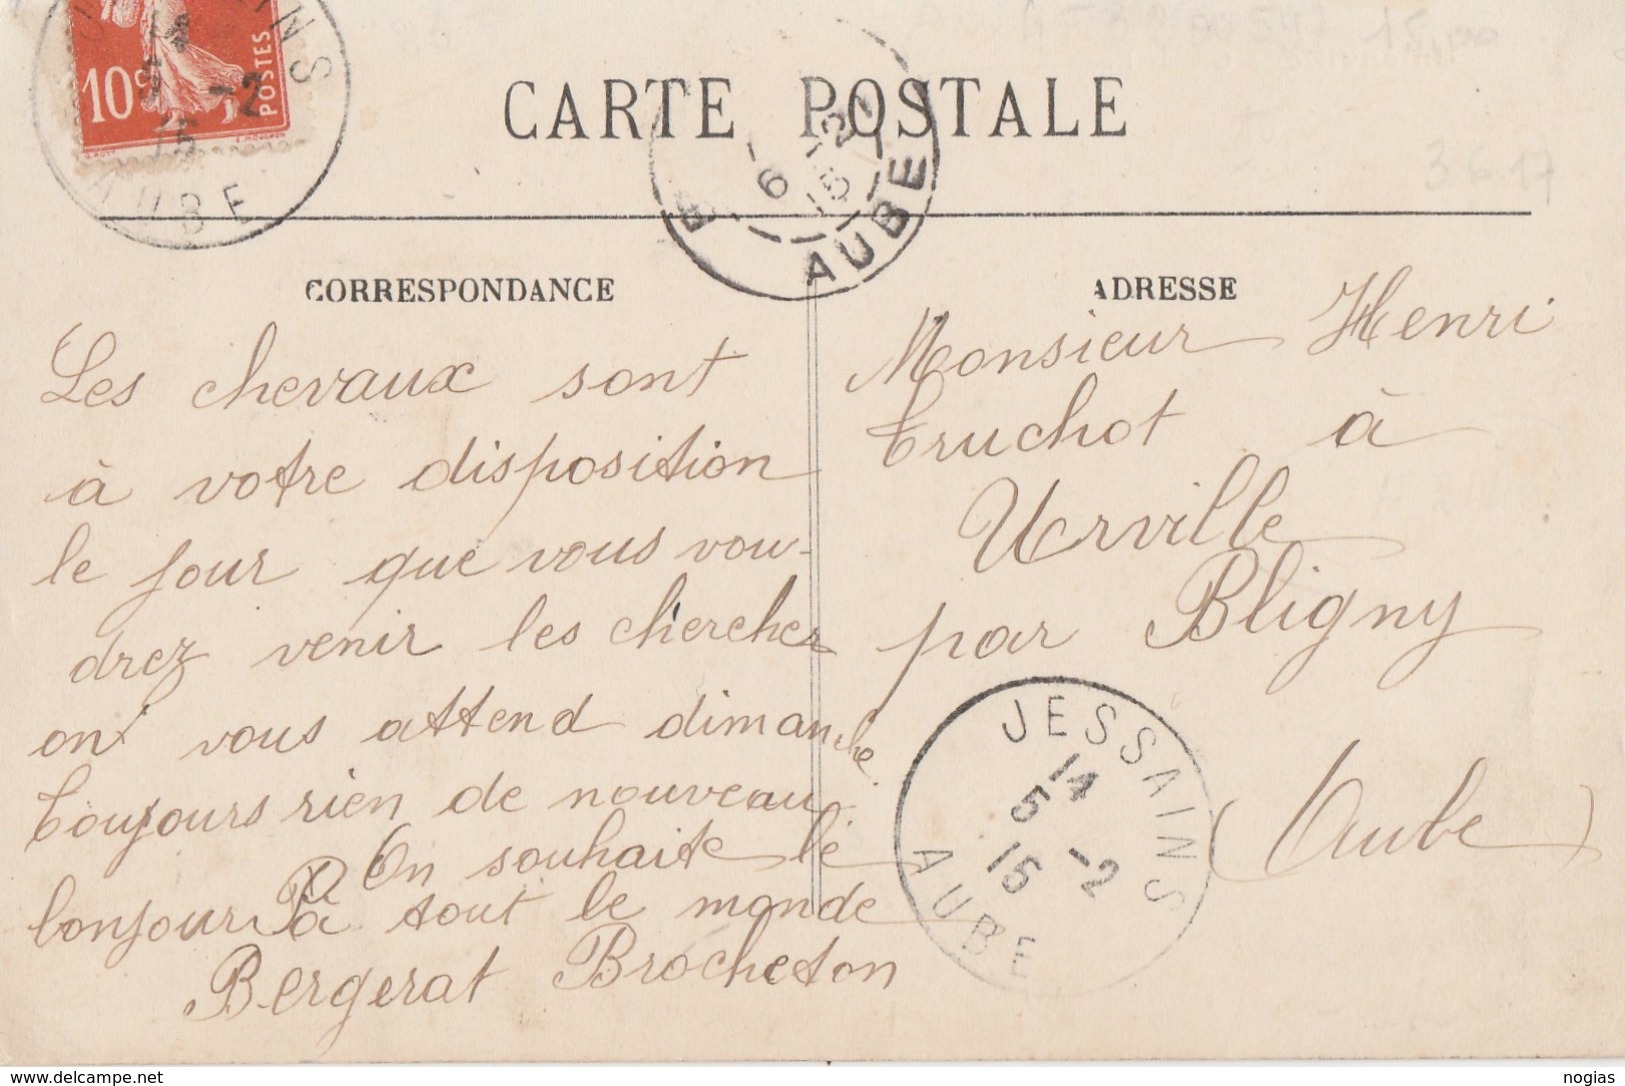 10c
POSTES
-2
15
AUBE
CARTE POSTALE
6 -2
15
B
AUBE
15,00
3.6.17
CORRESPONDANCE
Les chevaux sont
à votre disposition
le jour que vous vou-
drez venir les chercher
on vous attend dimanche.
Toujours rien de nouveau
On souhaite le
bonjour à tout le monde
Bergerat Brocheton
ADRESSE
Monsieur Henri
Truchot à
Urville
par Bligny
(Aube)
JESSAINS
14
5 -2
15
AUBE
www.delcampe.net
nogias